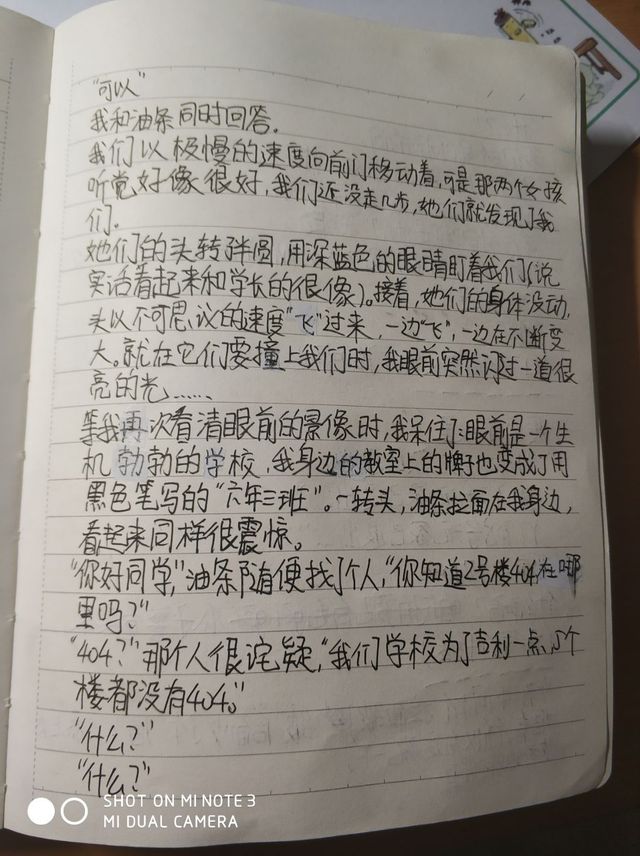 “可以”
我和油条同时回答。
我们以极慢的速度向前门移动着,可是那两个女孩
听觉好像很好,我们还没走几步,她们就发现了我
们。
她们的头转了半圆,用深蓝色的眼睛盯着我们(说
实话看起来和学长的很像)。接着,她们的身体没动,
头以不可思议的速度“飞”过来,一边“飞”,一边在不断变
大。就在它们要撞上我们时,我眼前突然闪过一道很
亮的光……
等我再次看清眼前的景像时,我呆住了:眼前是一个生
机勃勃的学校,我身边的教室上的牌子也变成了用
黑色笔写的“六年三班”。一转头,油条拉面在我身边,
看起来同样很震惊。
“你好同学,”油条随便找了个人,“你知道2号楼404在哪
里吗?”
“404?”那个人很诧疑,“我们学校为了吉利一点,
楼都没有404。”
“什么?”
“什么?”
SHOT ON MI NOTE 3
MI DUAL CAMERA